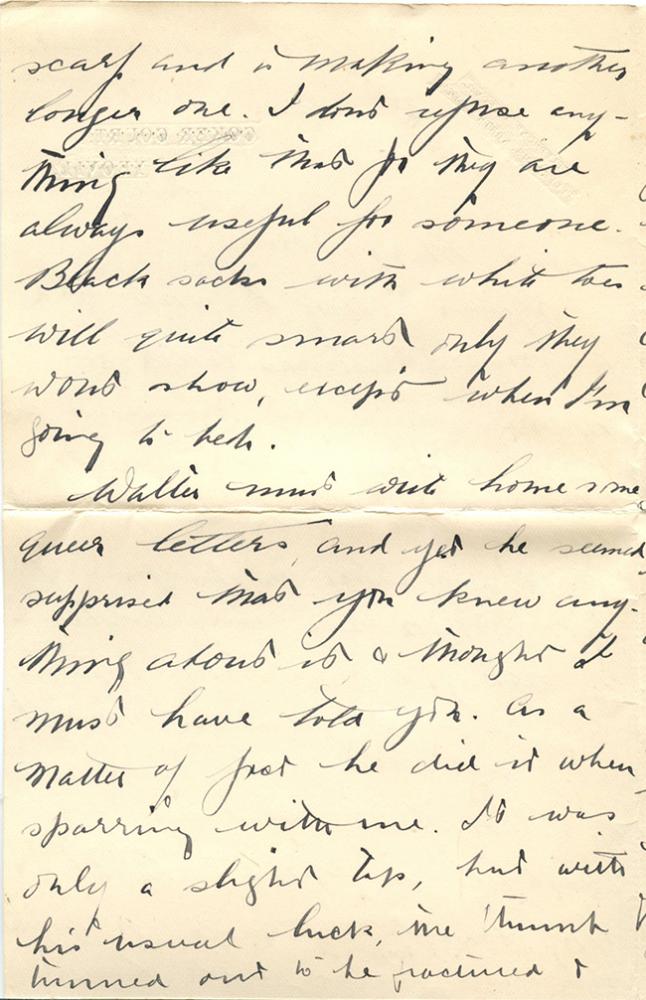 scarf and is making another
longer one. I dont refuse any-
thing like that for they are
always useful for someone.
Black socks with white toes
will quite smart only they
wont show, except when I'm
going to bed.
Walter must write home some
queer letters, and yet he seemed
supprised that you knew any-
thing about it & thought I
must have told you. As a
matter of fact he did it when
sparring with me. It was
only a slight tap, but with
his usual luck, the thumb
turned out to be fractured &